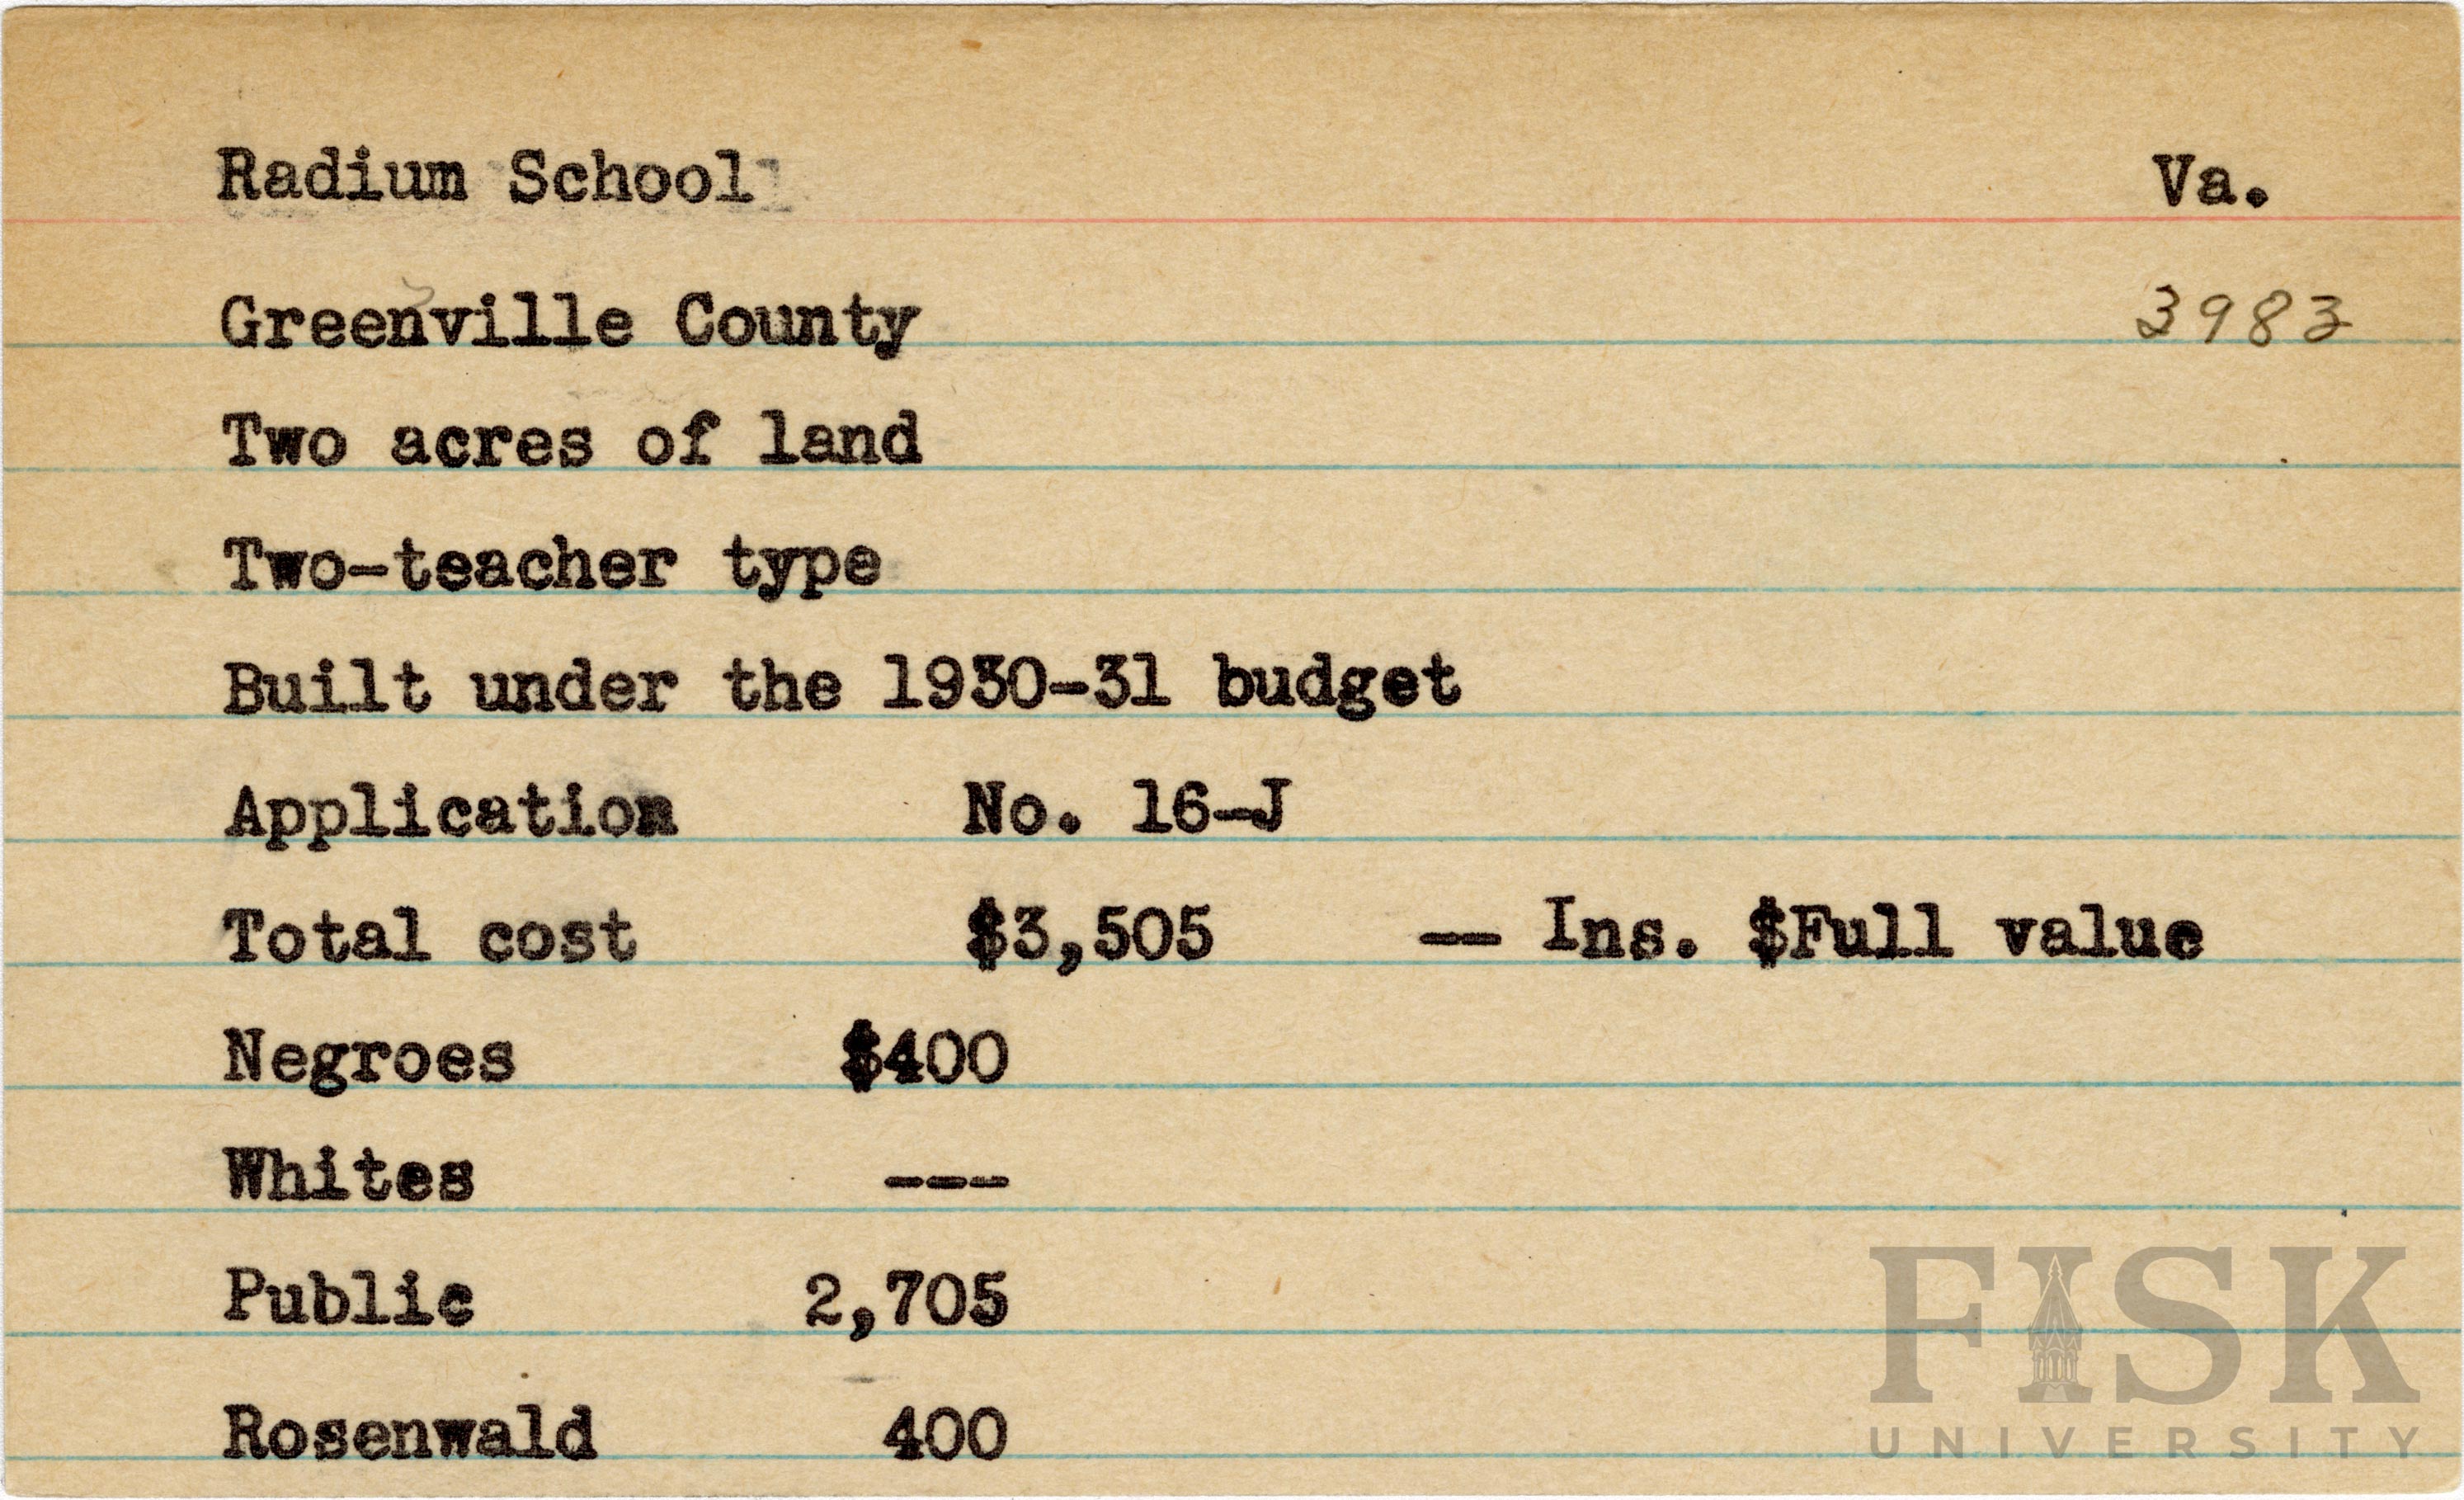 Radium School Va.
Greenville County 3983
Two acres of land
Two-teacher type
Built under the 1930-31 budget
Application No. 16-J
Total cost $3,505 -- Ins. $Full value
Negroes $400
Whites ---
Public 2,705
Rosenwald 400
FISK
UNIVERSITY